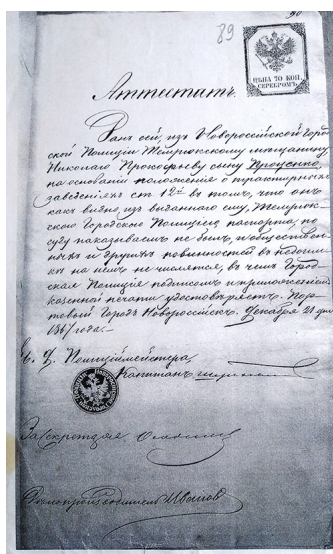 89
ЦѢНА 70 КОП.
СЕРЕБРОМЪ
Аттестатъ.
Данъ сей, изъ Новороссійской Город
ской Полиціи Темрюкскому мѣщанину
Николаю Прокофьеву сыну Проценко,
на основаніи положенія о трактирныхъ
заведеніяхъ ст 12й въ томъ, что онъ
какъ видно изъ выданнаго ему, Темрюк
скою Городскою Полиціею паспорта, по
суду наказываемъ не былъ, и обществен
ныхъ и другихъ повинностей въ недоимкѣ
на немъ не числится, въ чемъ Город
ская Полиція подписомъ и приложеніемъ
казенной печати удостовѣряетъ. Пор
товый Городъ Новороссійскъ. Декабря 21 дня
1867 года.
Полиціймейстера,
Капитанъ
За Секретаря
Дѣлопроизводитель Ивановъ